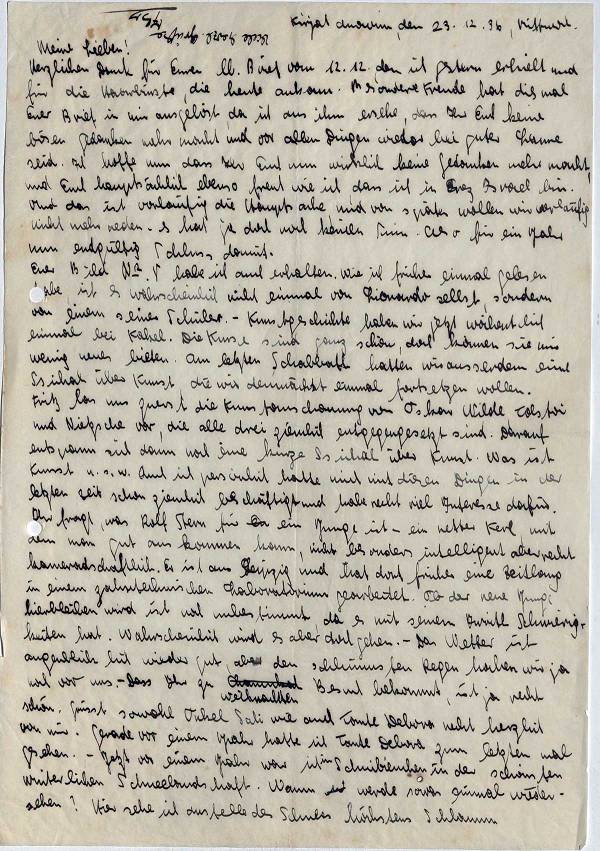 Kirjat Anavim, den 23.12.36, Mittwoch.
Viele herzl. Grüße
Meine Lieben!
Herzlichen Dank für Euren lb. Brief vom 12.12. den ich gestern erhielt und
für die Haarbürste, die heute ankam. Besondere Freude hat diesmal
Euer Brief in mir ausgelöst da ich aus ihm ersehe, dass Ihr Euch keine
bösen Gedanken mehr macht und vor allen Dingen wieder bei guter Laune
seid. Ich hoffe nun dass Ihr Euch nun wirklich keine Gedanken mehr macht,
und Euch hauptsächlich ebenso freut wie ich dass ich in Erez Israel bin.
Und das ist vorläufig die Hauptsache und von später wollen wir vorläufig
nicht mehr reden. Es hat ja doch noch keinen Sinn. Also für ein Jahr
nun endgültig Schluss damit.
Euer Bild No. 5 habe ich auch erhalten. Wie ich früher einmal gelesen
habe, ist es wahrscheinlich nicht einmal von Lionardo selbst, sondern
von einem seiner Schüler. - Kunstgeschichte haben wir jetzt wöchentlich
einmal bei Kahel. Die Kurse sind ganz schön, doch können sie mir
wenig neues bieten. Am letzten Schabbath hatten wir ausserdem eine
Ssichah über Kunst die wir demnächst einmal fortsetzen wollen.
Fritz las uns zuerst die Kunstanschauung von Oskar Wilde Tolstoi
und Nietzsche vor, die alle drei ziemlich entgegengesetzt sind. Darauf
entspann sich dann noch eine kurze Ssichah über Kunst. Was ist
Kunst u.s.w. Auch ich persönlich hatte mich mit diesen Dingen in der
letzten Zeit schon ziemlich beschäftigt und habe recht viel Interesse dafür.
Ihr fragt, was Rolf Stern für ein Junge ist - ein netter Kerl mit
dem man gut auskommen kann, nicht besonders intelligent aber recht
kameradschaftlich. Er ist aus Leipzig und hat dort früher eine Zeitlang
in einem zahntechnischen Laboratorium gearbeitet. Ob der neue Junge
hierbleiben wird ist noch unbestimmt, da es mit seinem Zertifikat Schwierig-
keiten hat. Wahrscheinlich wird es aber doch gehen. - Das Wetter ist
augenblicklich wieder gut, aber den schlimmsten Regen haben wir ja
noch vor uns. - Dass Ihr zu Weihnachten Besuch bekommt, ist ja recht
schön. Grüsst sowohl Onkel Sali wie auch Tante Debora recht herzlich
von mir. Gerade vor einem Jahr hatte ich Tante Debora zum letzten mal
gesehen. - Jetzt vor einem Jahr war ich in Schniebinchen in der schönsten
winterlichen Schneelandschaft. Wann werde sowas einmal wieder-
sehen? Hier sehe ich anstelle des Schnees höchstens Schlamm